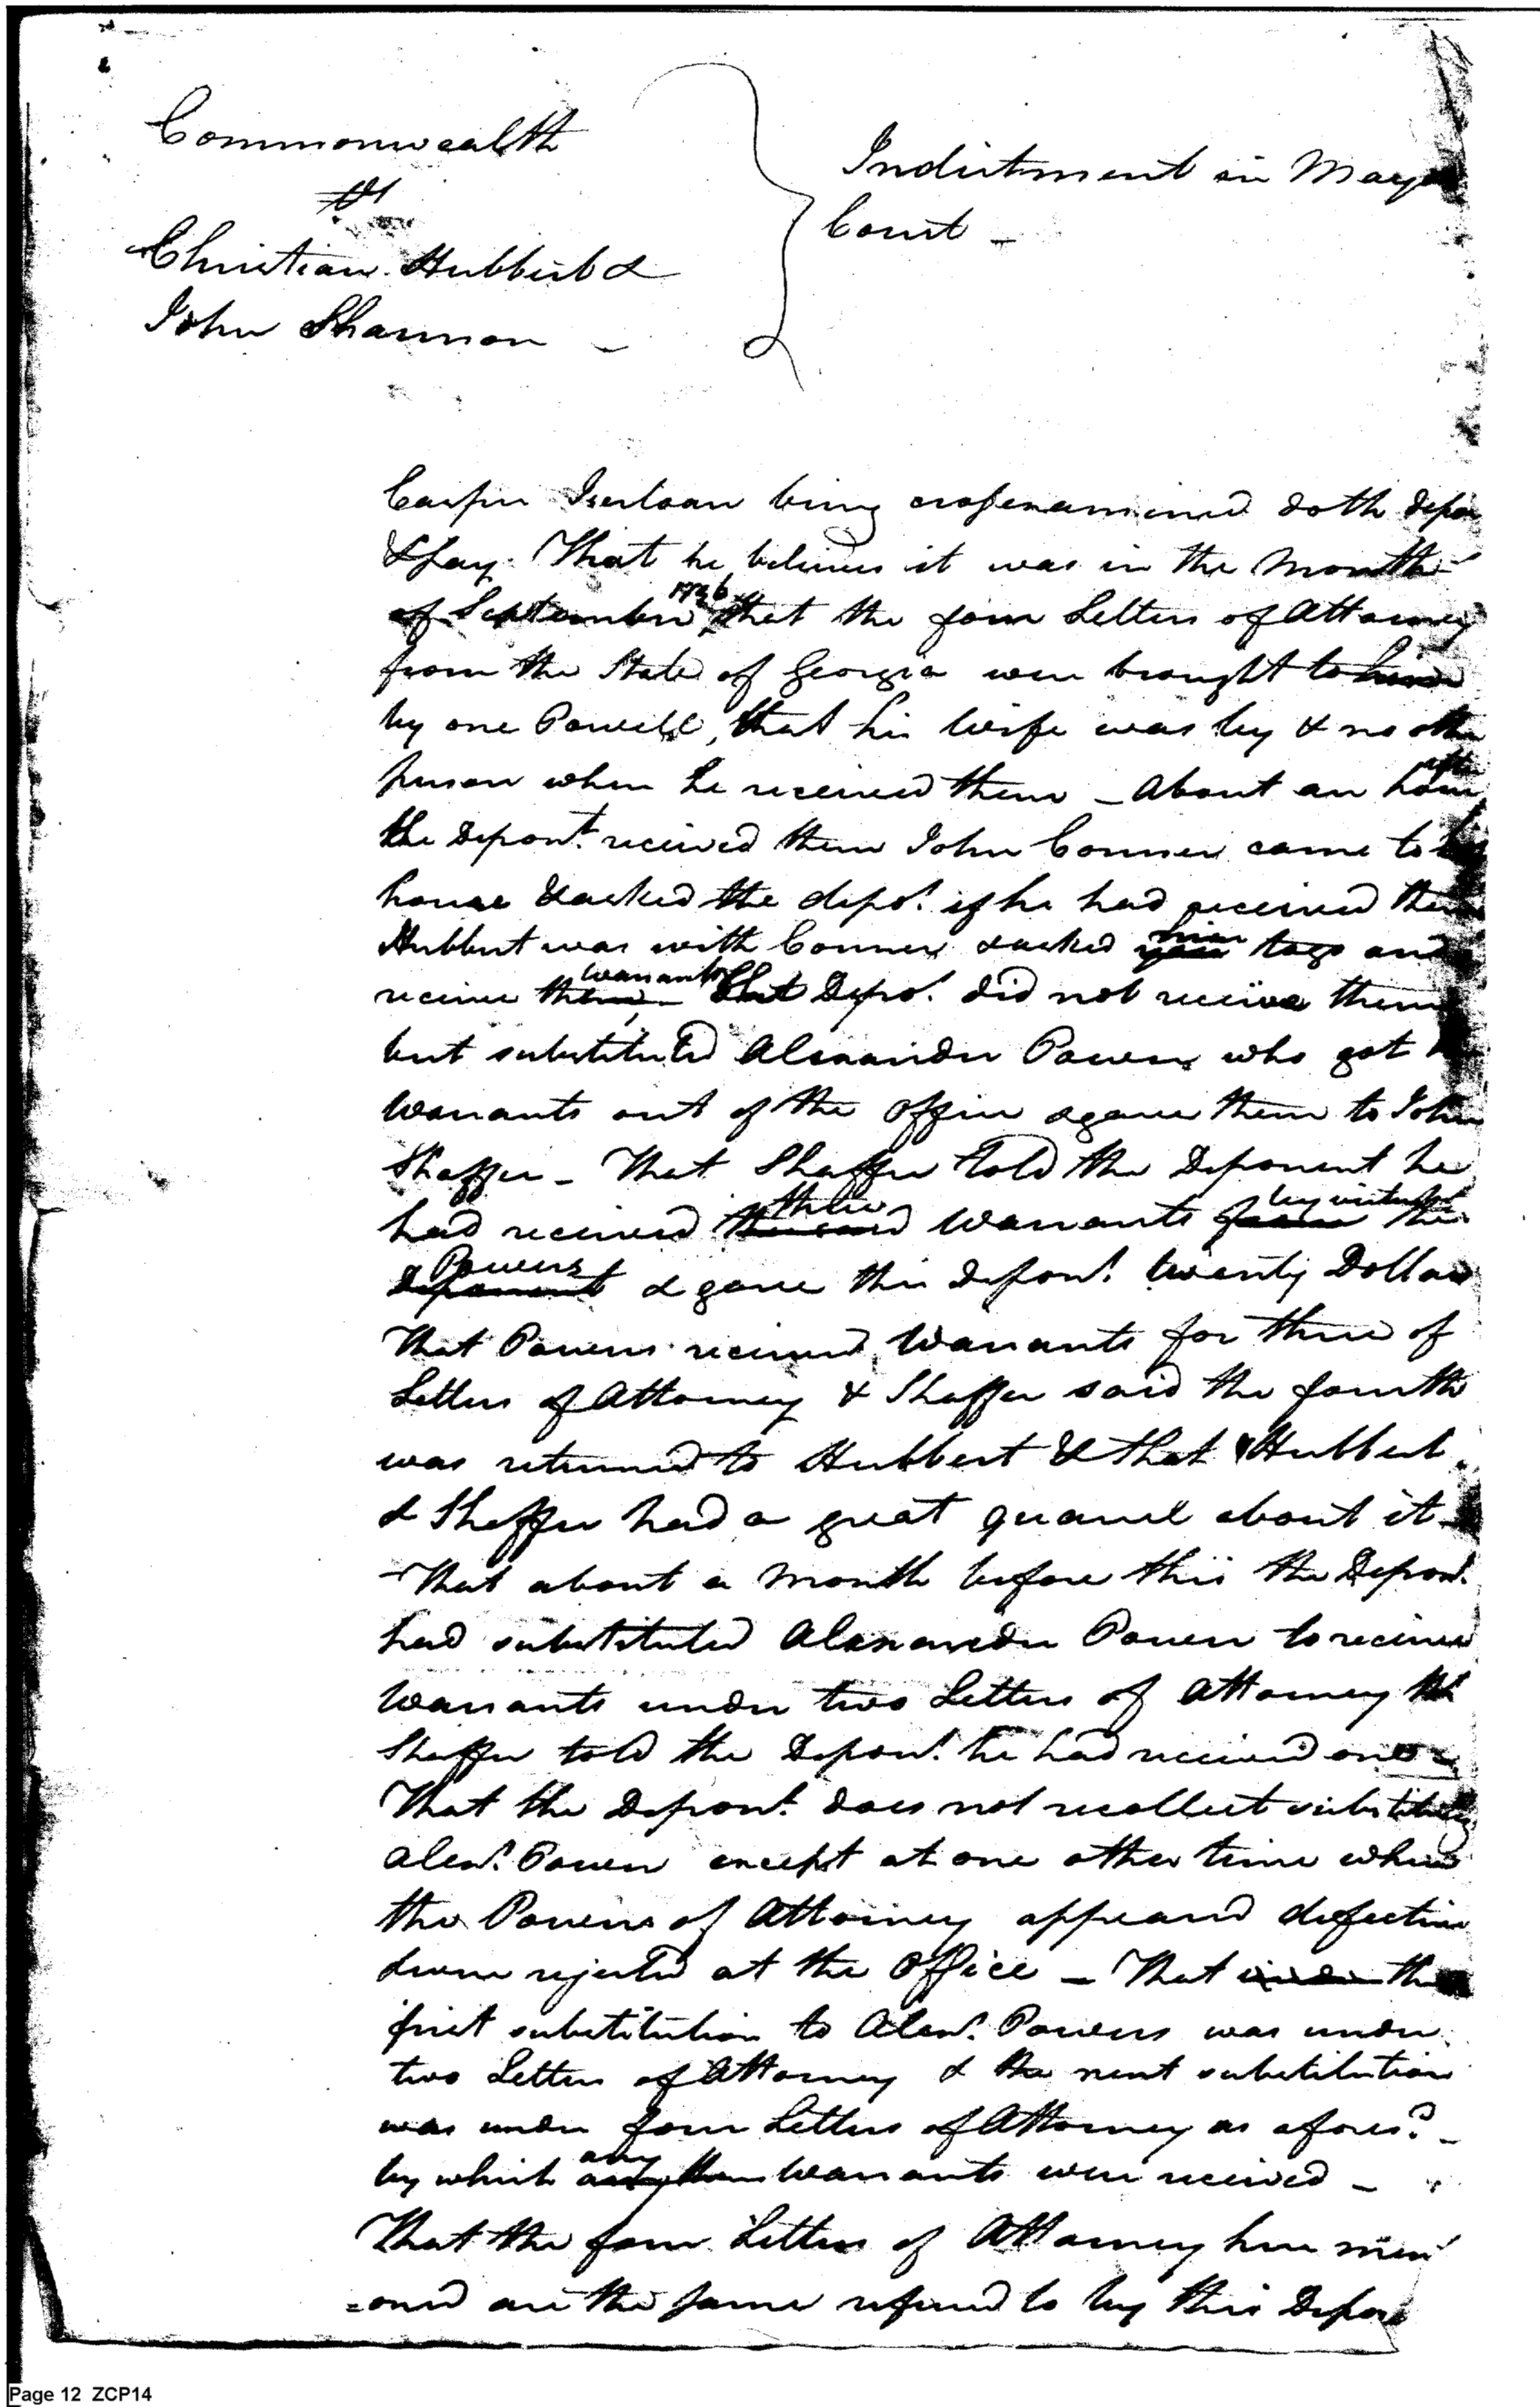 Commonwealth
vs
Christian Hubbert &
John Shannon –
Indictment in Mayo
Court –
Casper Iserloan being crossexamined doth depo
& say. That he believes it was in the Month
of September 1796 that the four Letters of Attorney
from the State of Georgia were brought to him
by one Powell, that his Wife was by & no othe
person when he received them – About an hour after
the Depont. received them John Conner came to his
house & asked the depot. if he had received them
Hubbert was with Conner & asked him to go and
receive warrants. That Depot. did not receive them
but substituted Alexander Powers who got
Warrants out of the Office & gave them to John
Shaffer – That Shaffer told the Deponent he
had received three Warrants by virtue of the
Powers & gave this Depont. twenty Dollars
That Powers received Warrants for three of
Letters of Attorney & Shaffer said the fourth
was returned to Hubbert & that Hubbert
& Shaffer had a great quarrel about it –
That about a Month before this the Depont.
had substituted Alexander Power to receive
Warrants under two Letters of Attorney that
Shaffer told the Depont. he had received one –
That the Depont. does not recollect substituting
Alexr. Power except at one other time when
the Powers of Attorney appeared defective
& were rejected at the Office – That the
first substitution to Alexr. Powers was under
two Letters of Attorney & the next substitution
was under four Letters of Attorney as afores.d –
by which any Warrants were received –
That the four Letters of Attorney here men
=oned are the same refered to by this Depon
Page 12 ZCP14